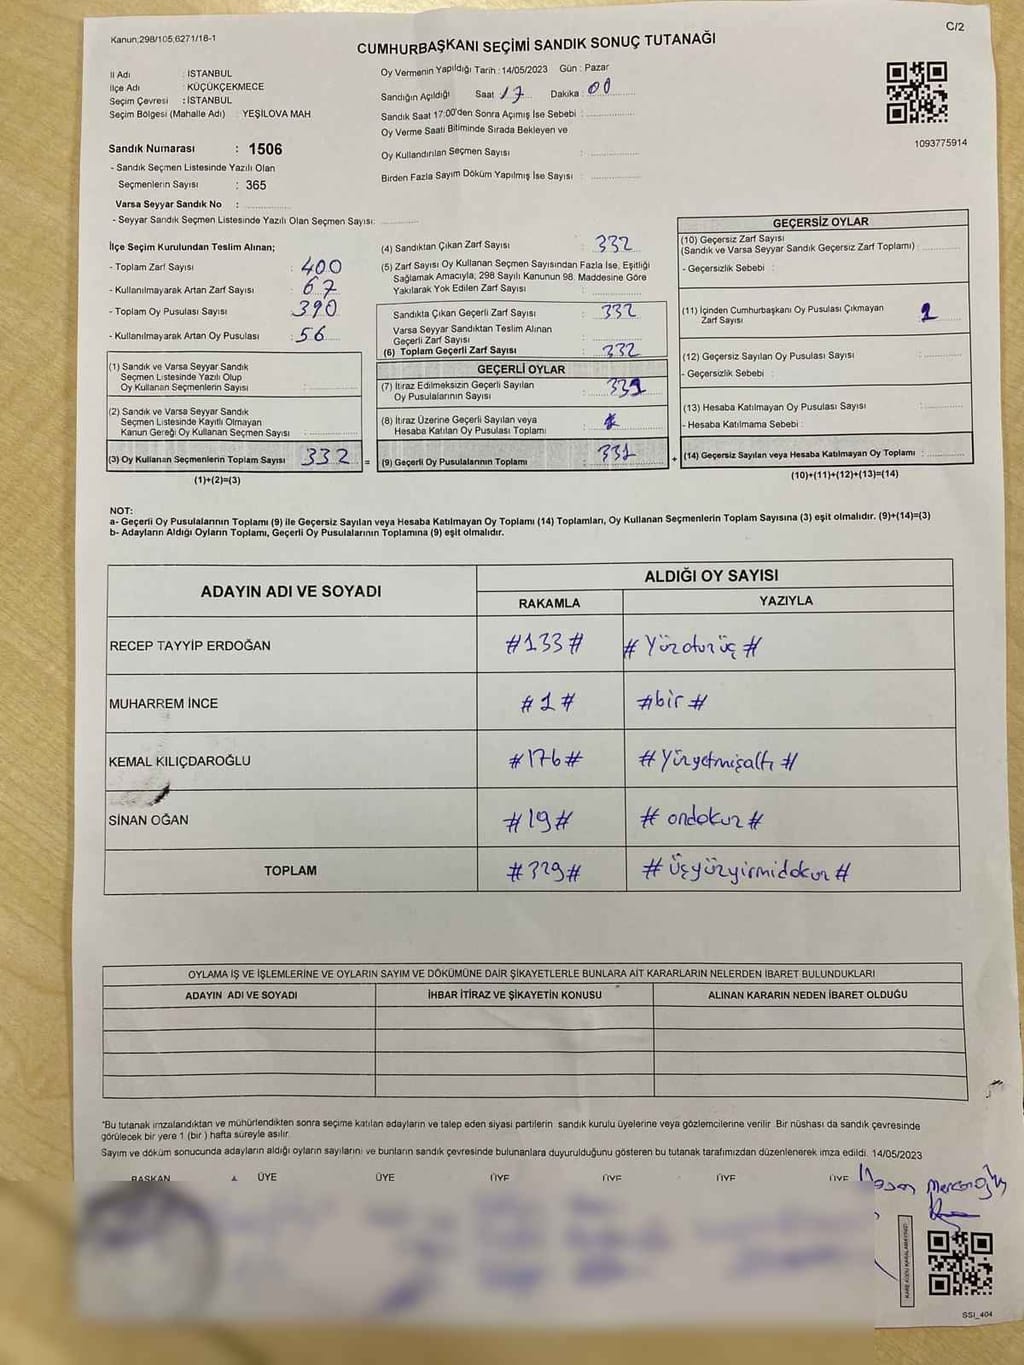 Kanun;298/105,6271/18-1
C/2
CUMHURBAŞKANI SEÇİMİ SANDIK SONUÇ TUTANAĞI
İl Adı : İSTANBUL
İlçe Adı : KÜÇÜKÇEKMECE
Seçim Çevresi : İSTANBUL
Seçim Bölgesi (Mahalle Adı) : YEŞİLOVA MAH
Sandık Numarası : 1506
- Sandık Seçmen Listesinde Yazılı Olan
Seçmenlerin Sayısı : 365
Varsa Seyyar Sandık No :
- Seyyar Sandık Seçmen Listesinde Yazılı Olan Seçmen Sayısı:
Oy Vermenin Yapıldığı Tarih : 14/05/2023 Gün : Pazar
Sandığın Açıldığı Saat 17 Dakika : 00
Sandık Saat 17:00'den Sonra Açımış İse Sebebi :
Oy Verme Saati Bitiminde Sırada Bekleyen ve
Oy Kullandırılan Seçmen Sayısı :
Birden Fazla Sayım Döküm Yapılmış İse Sayısı :
1093775914
İlçe Seçim Kurulundan Teslim Alınan;
- Toplam Zarf Sayısı : 400
- Kullanılmayarak Artan Zarf Sayısı : 67
- Toplam Oy Pusulası Sayısı : 390
- Kullanılmayarak Artan Oy Pusulası : 56
(1) Sandık ve Varsa Seyyar Sandık
Seçmen Listesinde Yazılı Olup
Oy Kullanan Seçmenlerin Sayısı :
(2) Sandık ve Varsa Seyyar Sandık
Seçmen Listesinde Kayıtlı Olmayan
Kanun Gereği Oy Kullanan Seçmen Sayısı :
(3) Oy Kullanan Seçmenlerin Toplam Sayısı 332 =
(1)+(2)=(3)
(4) Sandıktan Çıkan Zarf Sayısı : 332
(5) Zarf Sayısı Oy Kullanan Seçmen Sayısından Fazla İse, Eşitliği
Sağlamak Amacıyla, 298 Sayılı Kanunun 98. Maddesine Göre
Yakılarak Yok Edilen Zarf Sayısı :
Sandıkta Çıkan Geçerli Zarf Sayısı : 332
Varsa Seyyar Sandıktan Teslim Alınan
Geçerli Zarf Sayısı :
(6) Toplam Geçerli Zarf Sayısı : 332
GEÇERLİ OYLAR
(7) İtiraz Edilmeksizin Geçerli Sayılan
Oy Pusulalarının Sayısı : 331
(8) İtiraz Üzerine Geçerli Sayılan veya
Hesaba Katılan Oy Pusulası Toplamı :
(9) Geçerli Oy Pusulalarının Toplamı : 331 +
GEÇERSİZ OYLAR
(10) Geçersiz Zarf Sayısı
(Sandık ve Varsa Seyyar Sandık Geçersiz Zarf Toplamı) :
- Geçersizlik Sebebi :
(11) İçinden Cumhurbaşkanı Oy Pusulası Çıkmayan
Zarf Sayısı : 1
(12) Geçersiz Sayılan Oy Pusulası Sayısı :
- Geçersizlik Sebebi :
(13) Hesaba Katılmayan Oy Pusulası Sayısı :
- Hesaba Katılmama Sebebi :
(14) Geçersiz Sayılan veya Hesaba Katılmayan Oy Toplamı :
(10)+(11)+(12)+(13)=(14)
NOT:
a- Geçerli Oy Pusulalarının Toplamı (9) ile Geçersiz Sayılan veya Hesaba Katılmayan Oy Toplamı (14) Toplamları, Oy Kullanan Seçmenlerin Toplam Sayısına (3) eşit olmalıdır. (9)+(14)=(3)
b- Adayların Aldığı Oyların Toplamı, Geçerli Oy Pusulalarının Toplamına (9) eşit olmalıdır.
ADAYIN ADI VE SOYADI
ALDIĞI OY SAYISI
RAKAMLA YAZIYLA
RECEP TAYYİP ERDOĞAN #133# #Yüzotuzüç#
MUHARREM İNCE #1# #bir#
KEMAL KILIÇDAROĞLU #176# #Yüzyetmişaltı#
SİNAN OĞAN #19# #ondokuz#
TOPLAM #329# #Üçyüzyirmidokuz#
OYLAMA İŞ VE İŞLEMLERİNE VE OYLARIN SAYIM VE DÖKÜMÜNE DAİR ŞİKAYETLERLE BUNLARA AİT KARARLARIN NELERDEN İBARET BULUNDUKLARI
ADAYIN ADI VE SOYADI İHBAR İTİRAZ VE ŞİKAYETİN KONUSU ALINAN KARARIN NEDEN İBARET OLDUĞU
*Bu tutanak imzalandıktan ve mühürlendikten sonra seçime katılan adayların ve talep eden siyasi partilerin sandık kurulu üyelerine veya gözlemcilerine verilir. Bir nüshası da sandık çevresinde
görülecek bir yere 1 (bir) hafta süreyle asılır.
Sayım ve döküm sonucunda adayların aldığı oyların sayılarını ve bunların sandık çevresinde bulunanlara duyurulduğunu gösteren bu tutanak tarafımızdan düzenlenerek imza edildi. 14/05/2023
BAŞKAN ÜYE ÜYE ÜYE ÜYE ÜYE ÜYE
KARE KODU KARALAMAYINIZ!
SSI_404